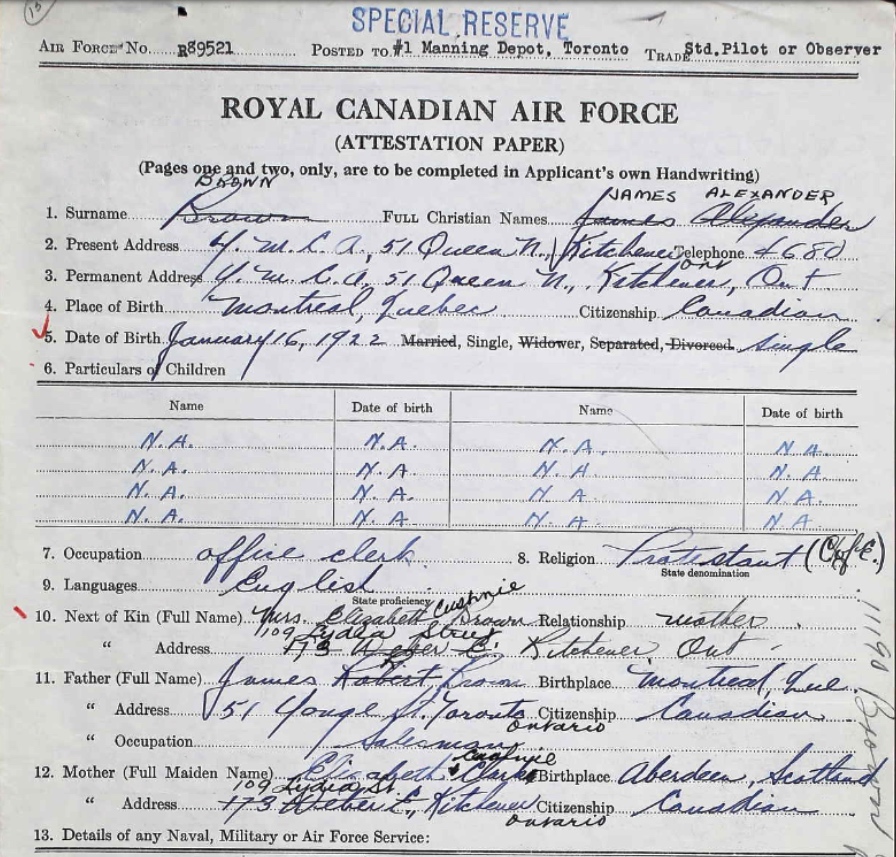 13
SPECIAL RESERVE
AIR FORCE No. R89521 POSTED TO #1 Manning Depot, Toronto TRADE Std.Pilot or Observer
ROYAL CANADIAN AIR FORCE
(ATTESTATION PAPER)
(Pages one and two, only, are to be completed in Applicant's own Handwriting)
BROWN JAMES ALEXANDER
1. Surname Brown FULL Christian Names James Alexander
2. Present Address Y.M.C.A., 51 Queen N., Kitchener Ont Telephone 4680
3. Permanent Address Y.M.C.A, 51 Queen N., Kitchener, Ont
4. Place of Birth Montreal, Quebec Citizenship Canadian
5. Date of Birth January 16, 1922 Married, Single, Widower, Separated, Divorced. Single
6. Particulars of Children
Name Date of birth Name Date of birth
N.A. N.A. N.A. N A.
N.A. N.A N.A N A
N.A. N.A. N A N A.
N.A. N A N A N A
7. Occupation office clerk 8. Religion Protestant (C of E.)
State denomination
9. Languages English
State proficiency
Cushnie
10. Next of Kin (Full Name) Mrs. Elizabeth Brown Relationship mother
109 Lydia Street
" Address 173 Weber E. Kitchener, Ont
11. Father (Full Name) James Robert Brown Birthplace Montreal, Que.
" Address 51 Yonge St. Toronto Ontario Citizenship Canadian
" Occupation Salesman
Cushnie
12. Mother (Full Maiden Name) Elizabeth Clark Birthplace Aberdeen, Scotland
109 Lydia St.
" Address 173 Weber E, Kitchener Ontario Citizenship Canadian
13. Details of any Naval, Military or Air Force Service: